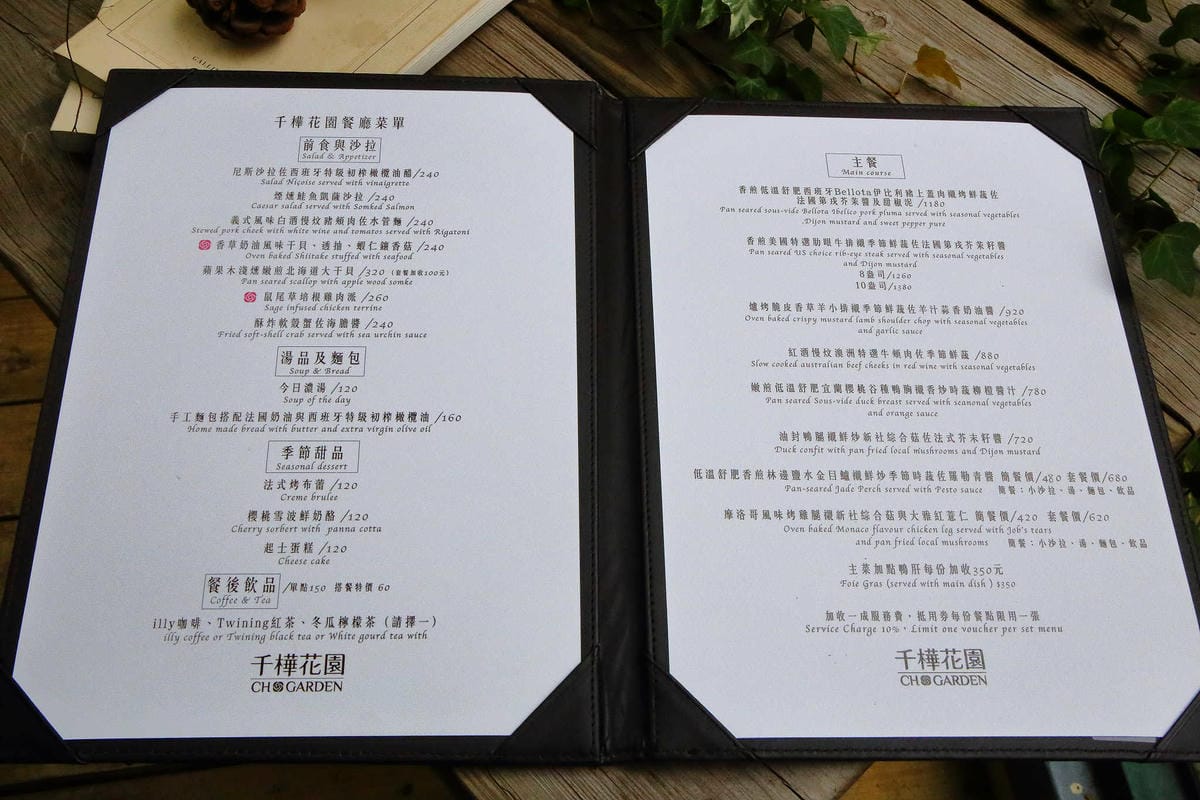 千樺花園餐廳菜單
前食與沙拉
Salad & Appetizer
尼斯沙拉佐西班牙特級初榨橄欖油醋/240
Salad Niçoise served with vinaigrette
煙燻鮭魚凱薩沙拉/240
Caesar salad served with Somked Salmon
義式風味白酒慢炆豬頰肉佐水管麵/240
Stewed pork cheek with white wine and tomatoes served with Rigatoni
香草奶油風味干貝、透抽、蝦仁鑲香菇/240
Oven baked Shiitake stuffed with seafood
蘋果木淺燻嫩煎北海道大干貝/320 (套餐加收100元)
Pan seared scallop with apple wood somke
鼠尾草培根雞肉派/260
Sage infused chicken terrine
酥炸軟殼蟹佐海膽醬/240
Fried soft-shell crab served with sea urchin sauce
湯品及麵包
Soup & Bread
今日濃湯/120
Soup of the day
手工麵包搭配法國奶油與西班牙特級初榨橄欖油/160
Home made bread with butter and extra virgin olive oil
季節甜品
Seasonal dessert
法式烤布蕾/120
Creme brulee
櫻桃雪波鮮奶酪/120
Cherry sorbert with panna cotta
起士蛋糕/120
Cheese cake
餐後飲品/單點150 搭餐特價 60
Coffee & Tea
illy咖啡、Twining紅茶、冬瓜檸檬茶（請擇一）
illy coffee or Twining black tea or White gourd tea with
千樺花園
CHO GARDEN
主餐
Main course
香煎低溫舒肥西班牙Bellota伊比利豬上蓋肉襯烤鮮蔬佐
法國第戎芥茉醬及甜椒泥/1180
Pan seared sous-vide Bellota Ibelico pork pluma served with seasonal vegetables
,Dijon mustard and sweet pepper pure
香煎美國特選肋眼牛排襯季節鮮蔬佐法國第戎芥茉籽醬
Pan seared US choice rib-eye steak served with seasonal vegetables
and Dijon mustard
8盎司/1260
10盎司/1380
爐烤脆皮香草羊小排襯季節鮮蔬佐羊汁蒜香奶油醬/920
Oven baked crispy mustard lamb shoulder chop with seasonal vegetables
and garlic sauce
紅酒慢炆澳洲特選牛頰肉佐季節鮮蔬/880
Slow cooked australian beef cheeks in red wine with seasonal vegetables
嫩煎低溫舒肥宜蘭櫻桃谷種鴨胸襯香炒時蔬柳橙醬汁/780
Pan seared Sous-vide duck breast served with seanonal vegetables
and orange sauce
油封鴨腿襯鮮炒新社綜合菇佐法式芥末籽醬/720
Duck confit with pan fried local mushrooms and Dijon mustard
低溫舒肥香煎林邊鹽水金目鱸襯鮮炒季節時蔬佐羅勒青醬 簡餐價/480 套餐價/680
Pan-seared Jade Perch served with Pesto sauce 簡餐：小沙拉、湯、麵包、飲品
摩洛哥風味烤雞腿襯新社綜合菇與大雅紅薏仁 簡餐價/420 套餐價/620
Oven baked Monaco flavour chicken leg served with Job's tears
and pan fried local mushrooms 簡餐：小沙拉、湯、麵包、飲品
主菜加點鴨肝每份加收350元
Foie Gras (served with main dish ) $350
加收一成服務費，抵用券每份餐點限用一張
Service Charge 10%，Limit one voucher per set menu
千樺花園
CHO GARDEN